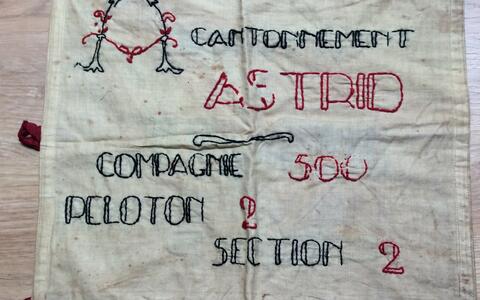 CANTONNEMENT
ASTRID
COMPAGNIE 500
PELOTON 2
SECTION 2